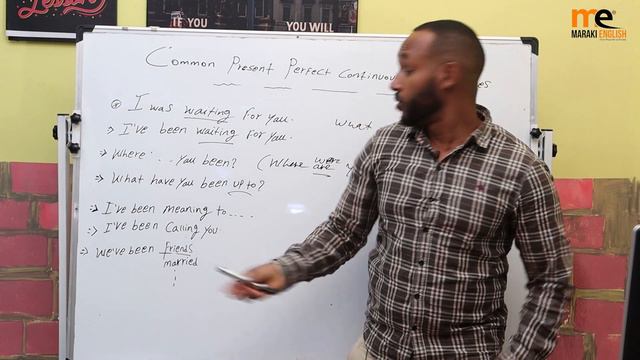 Lesson
IF YOU
YOU WILL
me
MARAKI ENGLISH
Common Present Perfect Continuou es
I was waiting for you.
What
I've been waiting for you.
Where ... you been? (Where were
are
What have you been up to?
I've been meaning to ....
I've been calling you
We've been friends
married